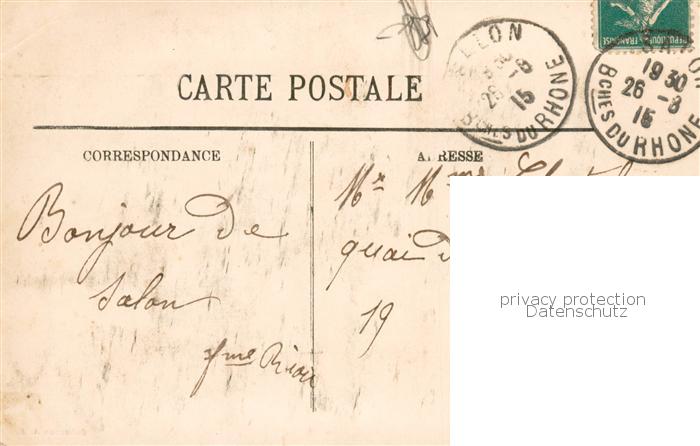 CARTE POSTALE
LON
26 -8
15
BCHES DU RHONE
SALON
19 30
26 -8
15
BCHES DU RHONE
CORRESPONDANCE
ADRESSE
Bonjour de
Salon
Mr Mme
quai d
19
privacy protection
Datenschutz